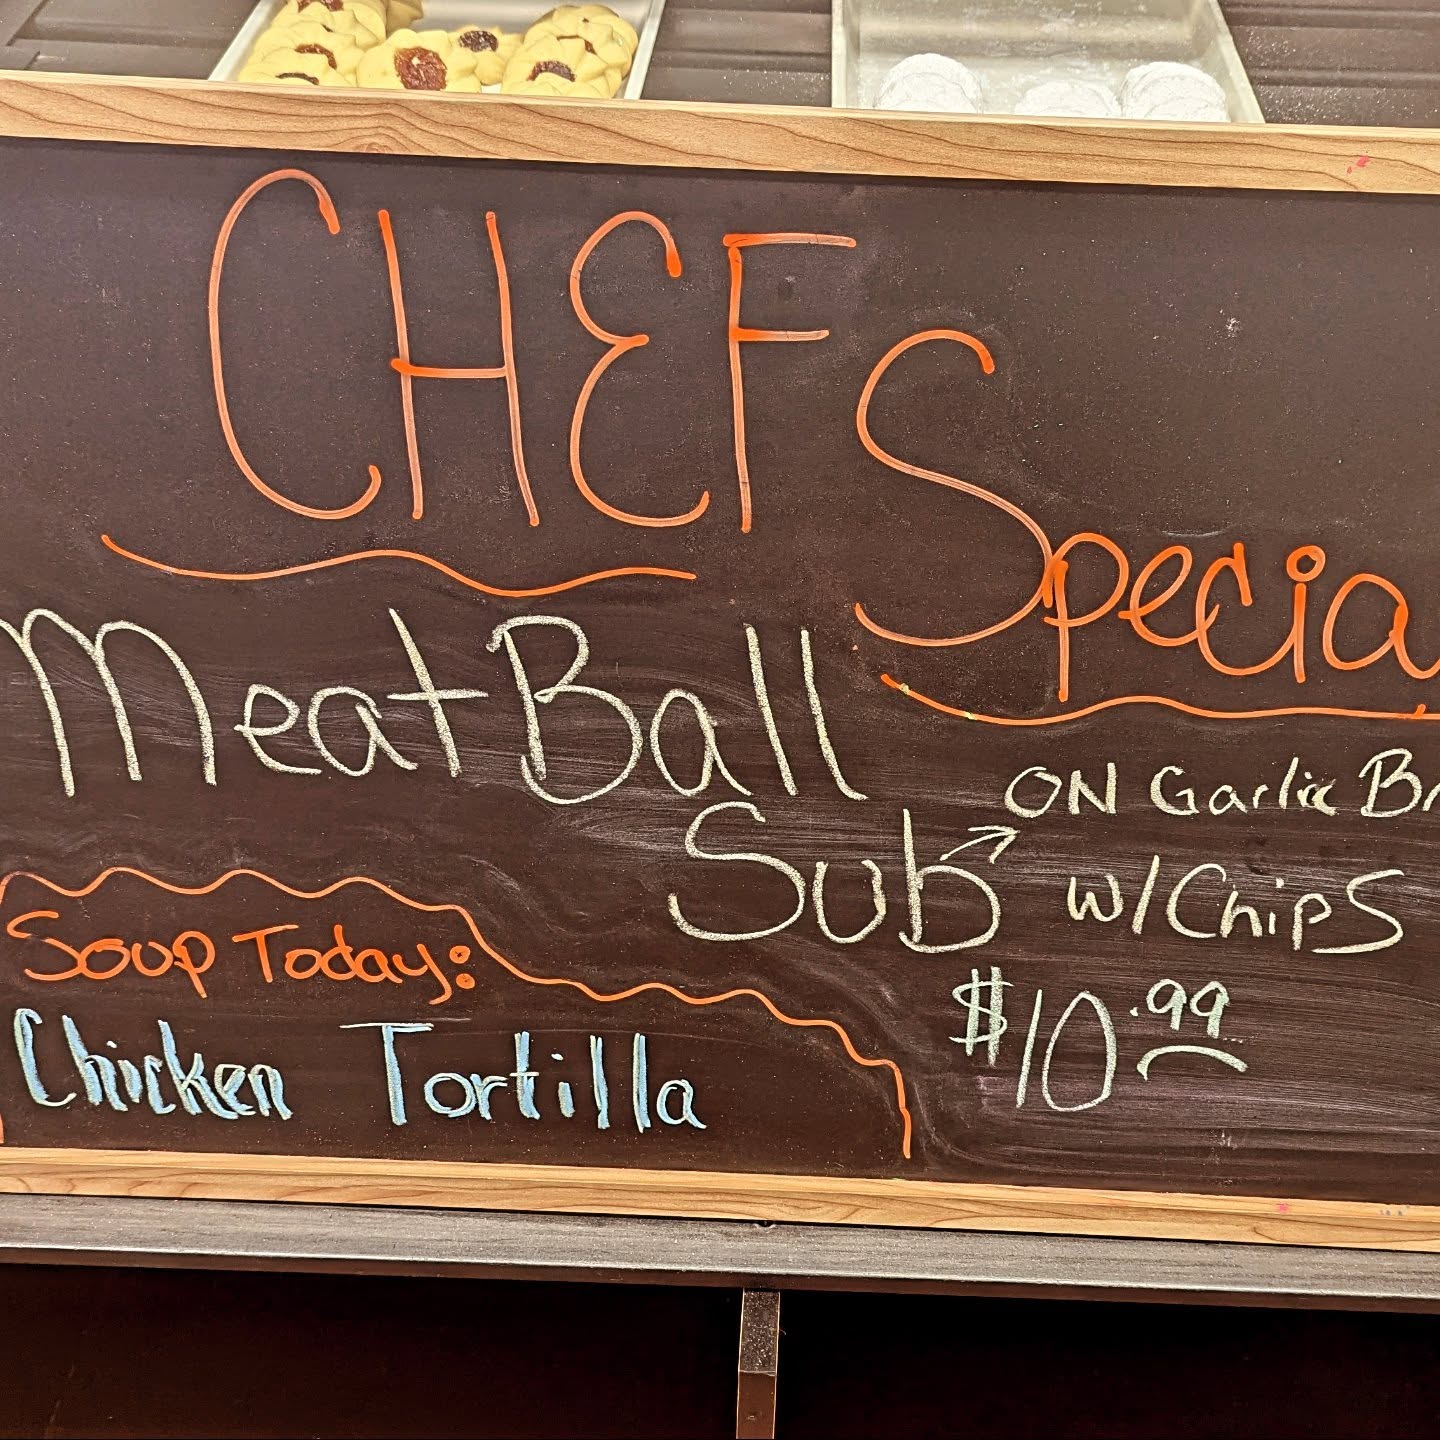 CHEF Specia
MeatBall
Sub ON Garlic Br
w/Chips
$10.99
Soup Today:
Chicken Tortilla